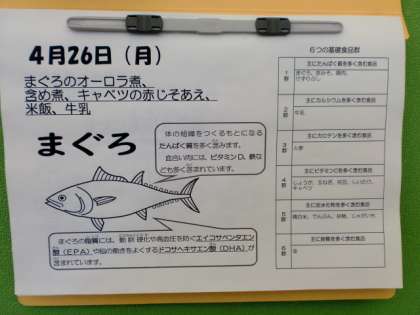 4月26日（月）
まぐろのオーロラ煮、
含め煮、キャベツの赤じそあえ、
米飯、牛乳
まぐろ
体の組織をつくるもとになる
たんぱく質を多く含みます。
血合いには、ビタミンD、鉄な
ども多く含まれています。
まぐろの脂質には、動脈硬化や高血圧を防ぐエイコサペンタエン
酸（EPA）や脳の働きをよくするドコサヘキサエン酸（DHA）が
含まれています。
６つの基礎食品群
1群
主にたんぱく質を多く含む食品
2群
主にカルシウムを多く含む食品
牛乳
3群
主にカロテンを多く含む食品
人参
4群
主にビタミンCを多く含む食品
しょうが、玉ねぎ、
キャベツ
5群
主に炭水化物を多く含む食品
精白米、でんぷん、砂糖、じゃがいも
6群
主に脂質を多く含む食品
油